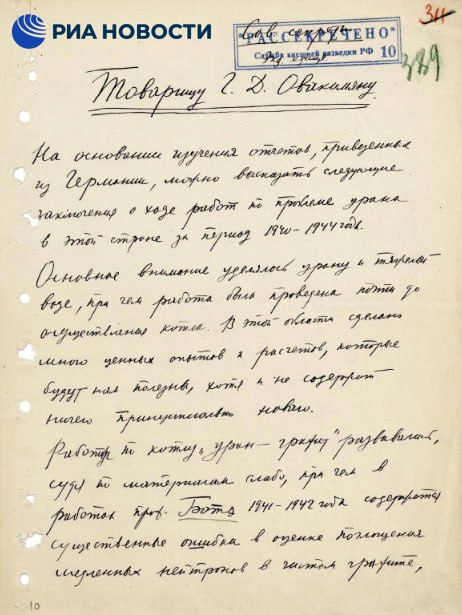 РИА НОВОСТИ
Сов. секретно
"РАССЕКРЕЧЕНО"
Служба внешней разведки РФ 10
34
389
Товарищу Г. Д. Овакимяну.
На основании изучения отчетов, привезенных
из Германии, можно высказать следующие
заключения о ходе работ по проблеме урана
в этой стране за период 1940-1944 годы.
Основное внимание уделялось урану и тяжелой
воде, при чем работа была проведена почти до
осуществления котла. В этой области сделано
много ценных опытов и расчетов, которые
будут нам полезны, хотя и не содержат
ничего принципиально нового.
Работы по котлу "уран — графит" развивались,
судя по материалам слабо, при чем в
работах проф. Боте 1941-1942 года содержатся
существенные ошибка в оценке поглощения
медленных нейтронов в чистом графите,
10